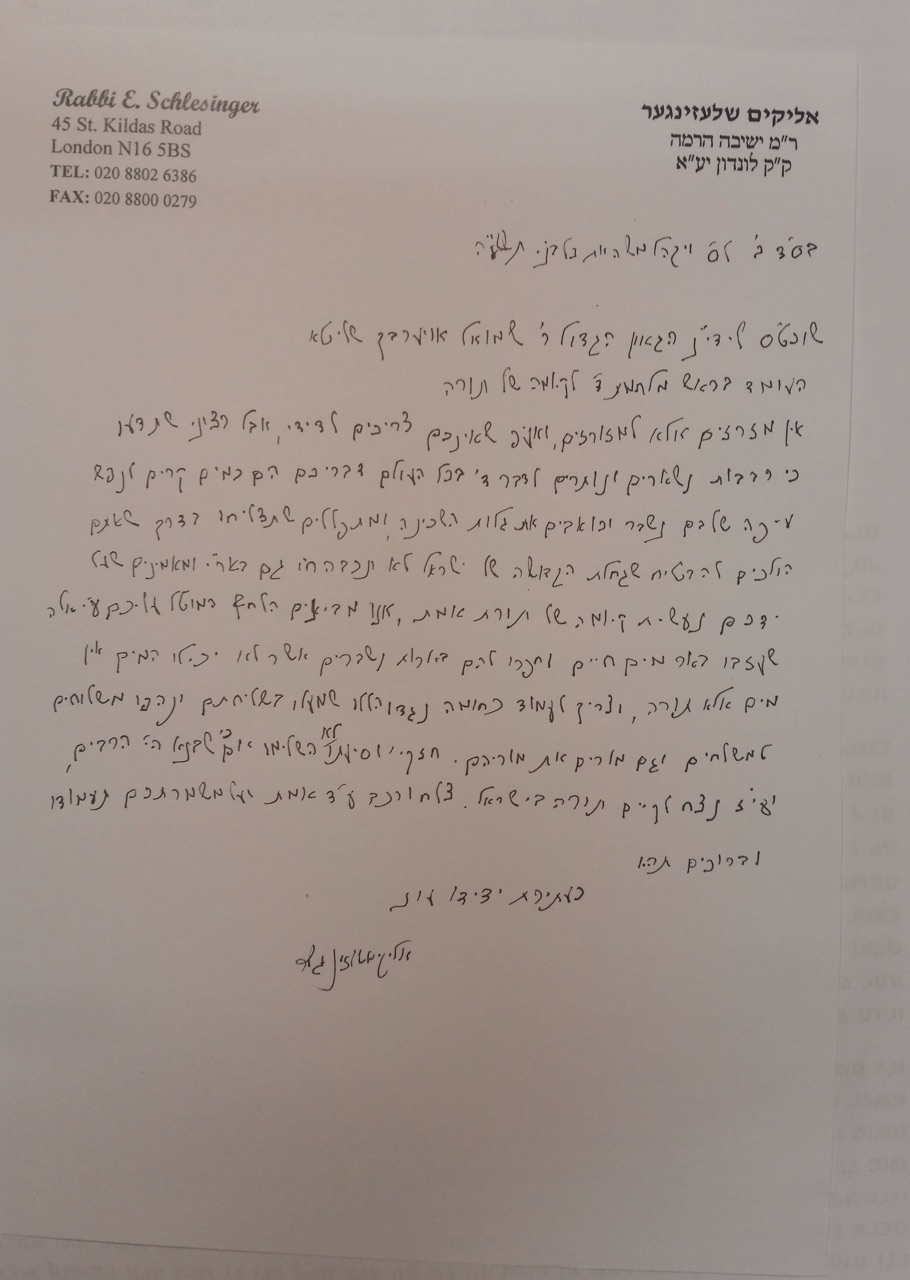 Rabbi E. Schlesinger
45 St. Kildas Road
London N16 5BS
TEL: 020 8802 6386
FAX: 020 8800 0279
אליקים שלעזינגער
ר"מ ישיבה הרמה
ק"ק לונדון יע"א
בס"ד ב' לס' ויקהל משה את כל בני תשע"ה
שוכט"ס לידי"נ הגאון הגדול ר' שמואל אויערבך שליטא
העומד בראש מלחמת ד' לקיומה של תורה
אין מזרזים אלא למזורזים, ואע"פ שאינכם צריכים לדידי, אבל רציני שתדעו
כי רבבות נשארים ונותרים לדבר ד' בכל העולם דבריכם הם כמים קרים לנפש
עיפה שלבם נשבר וכואבים את גלות השכינה, ומתפללים שתצליחו בדרך שאתם
הולכים להבטיח שגחלת הקדושה של ישראל לא תכבה ח"ו גם באר"י ומאמינים שעל
ידכם נעשית קיומה של תורת אמת, אנו מביאים הלחץ המוטל עליכם ע"י אלה
שעזבו באר מים חיים וחפרו להם בארות נשברים אשר לא יכילו המים אין
מים אלא תורה, וצריך לעמוד כחומה נגד הללו שמעלו בשליחתם ונהפכו משלוחים
למשלחים וגם מורים את מוריהם. חזקי' וסיעתו לא השלימו אם כי שבנא הי' הרבים,
ועי"ז נצח לקיים תורה בישראל. צלח ורכב ע"ד אמת ועל משמרתכם תעמודו
וברוכים תהא
כעתירת ידידו עוז